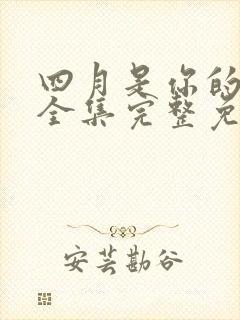 四月是你的
全集完整免
安芸勘谷